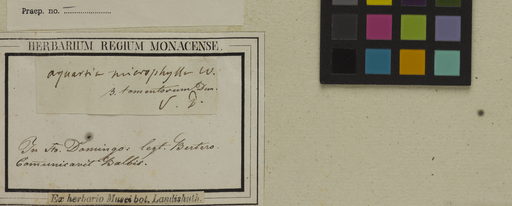 Praep. no.
HERBARIUM REGIUM MONACENSE.
aquartia microphylla W.
3. tomentosum Dun.
S. D.
In Sto. Domingo: legt. Bertero.
Comunicavit Balbis.
Ex herbario Musei bot. Landishuth.